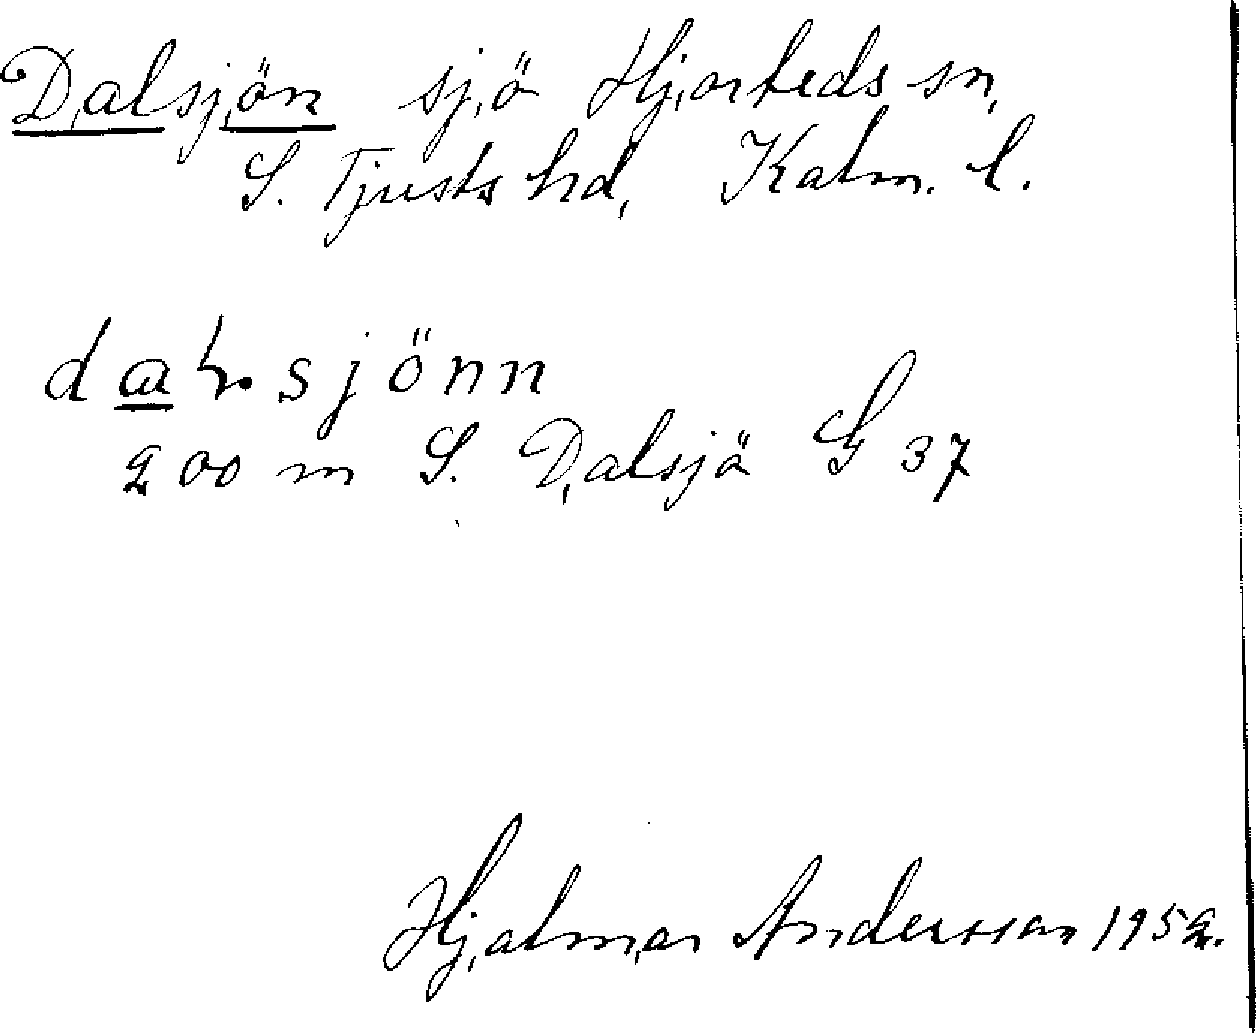 Dalsjön sjö Hjorteds sn,
S. Tjusts hd, Kalm. l.
daɫ.sjönn
200 m S. Dalsjö G 37
Hjalmar Andersson 1952.